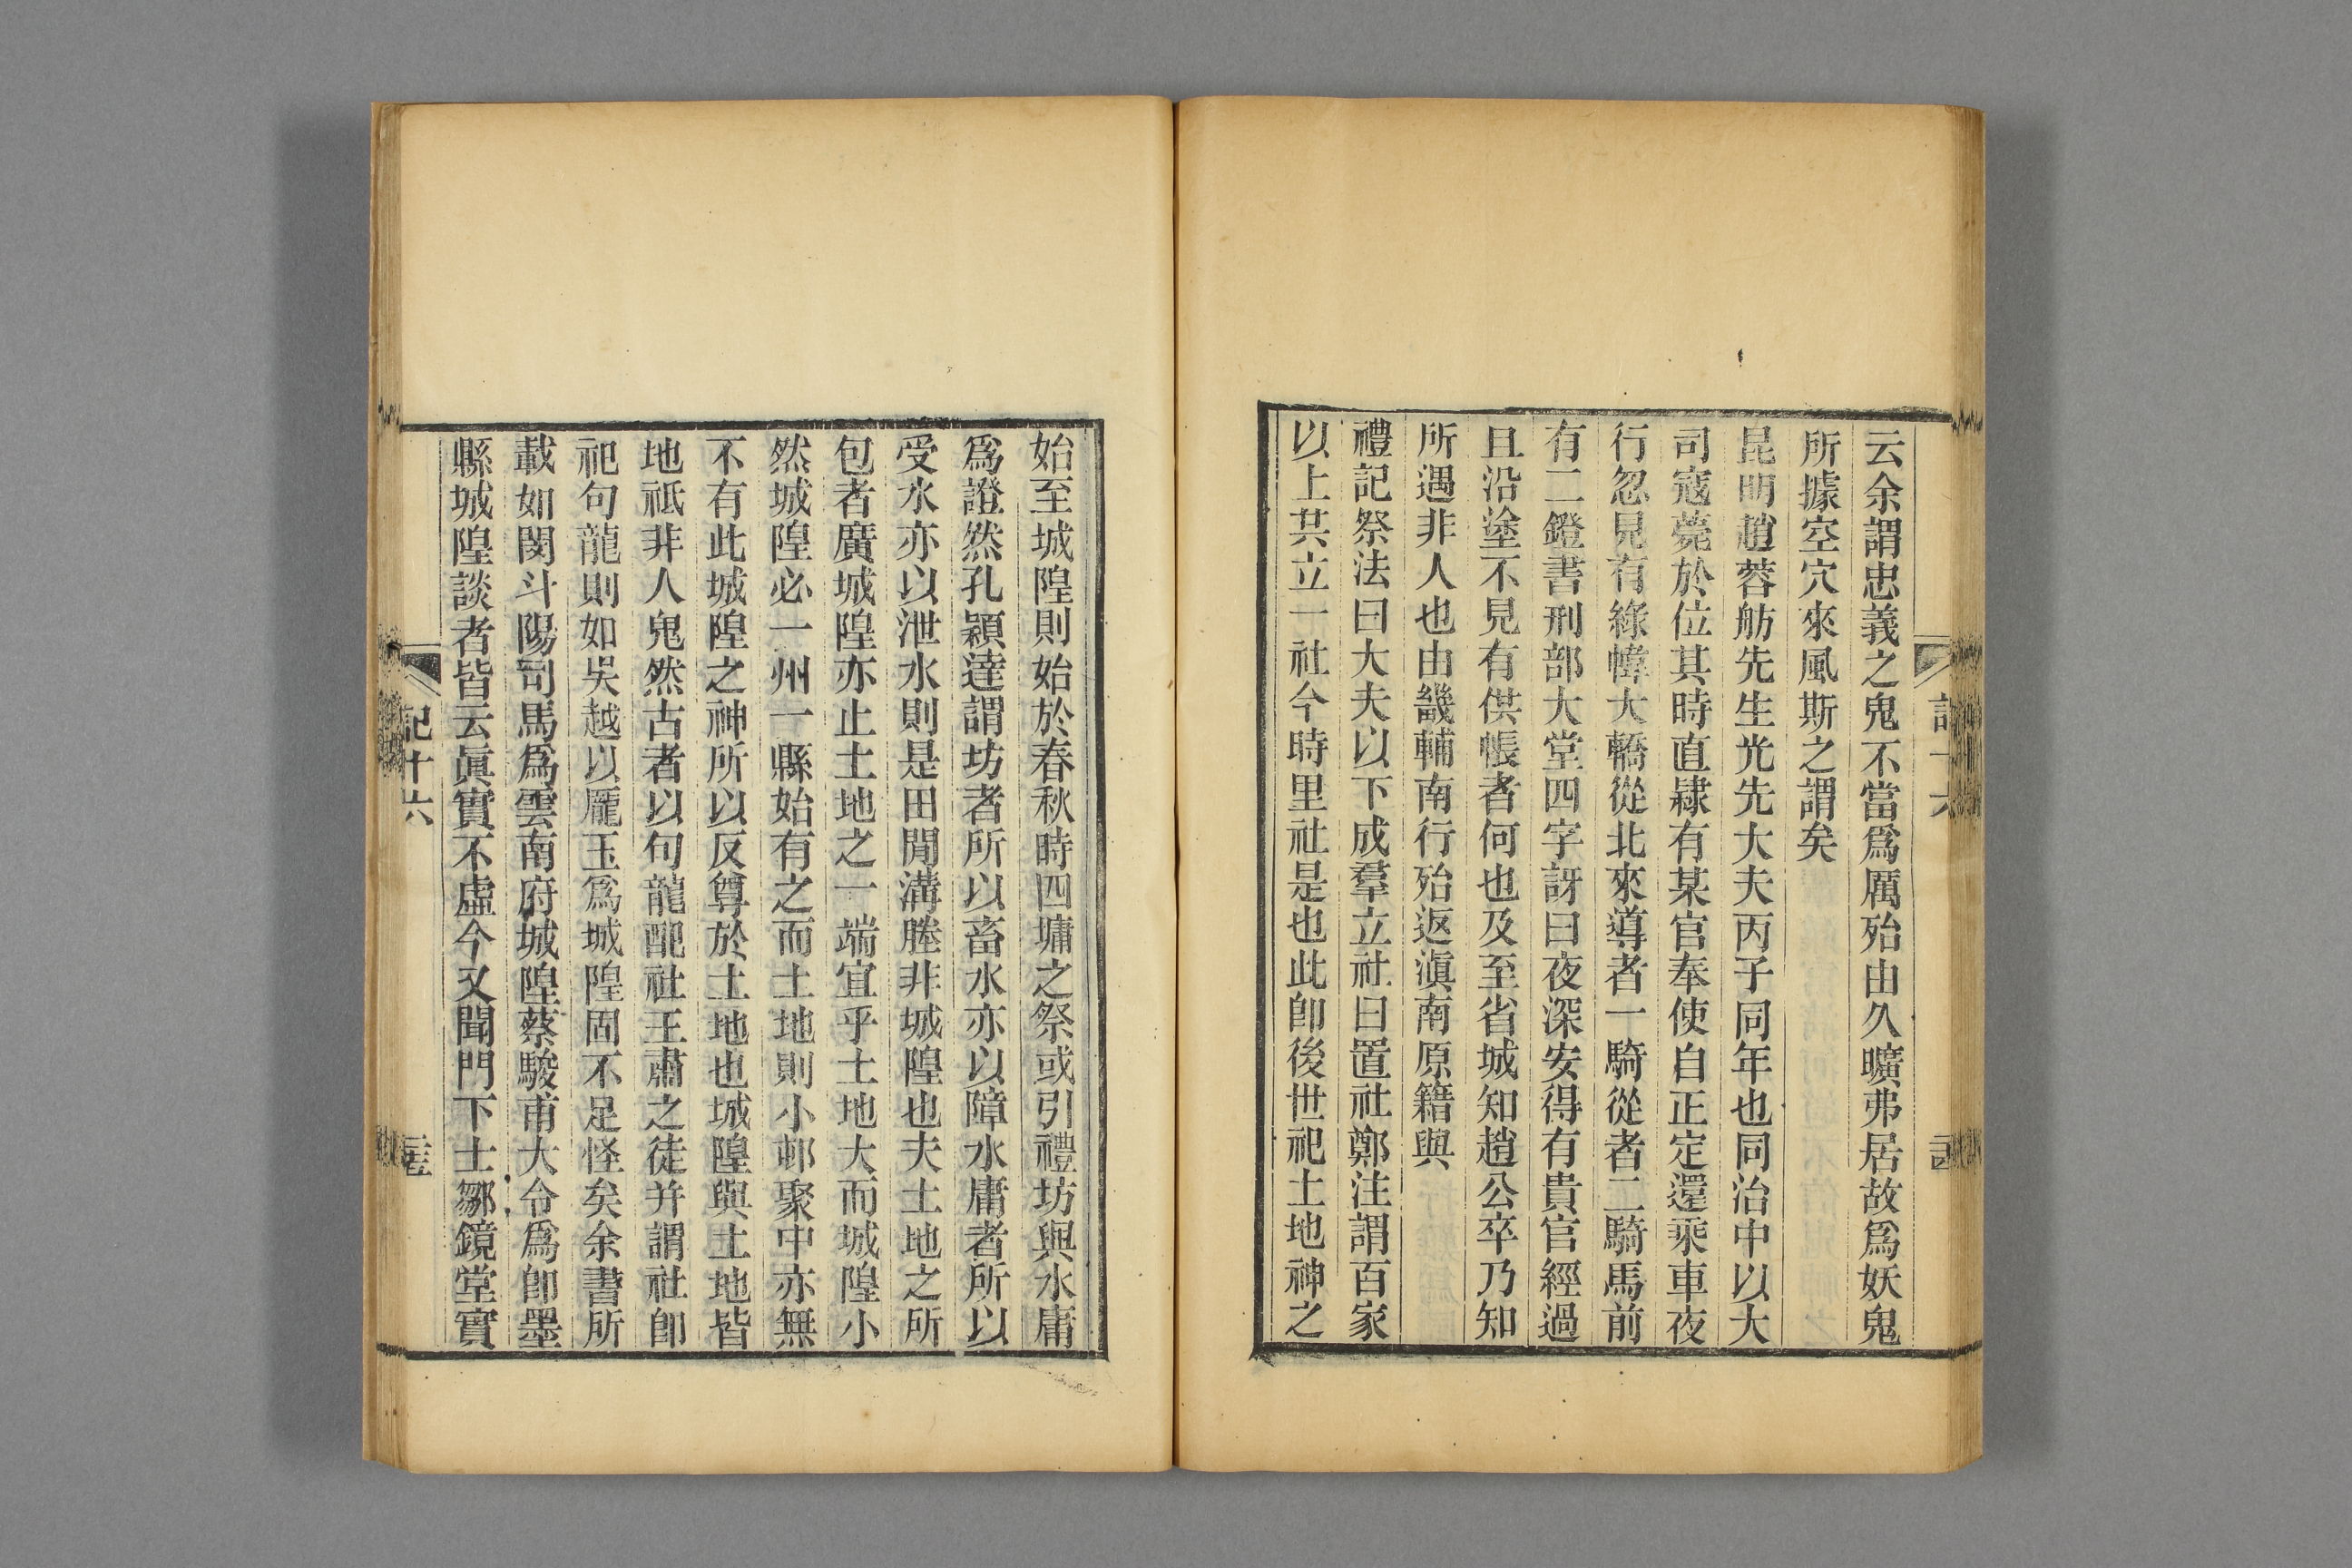 云余謂忠義之鬼不當爲厲殆由久曠弗居故爲妖鬼
所據空穴來風斯之謂矣
昆明趙蓉舫先生光先大夫丙子同年也同治中以大
司寇薨於位其時直隸有某官奉使自正定還乘車夜
行忽見有綠幃大轎從北來導者一騎從者二騎馬前
有二鐙書刑部大堂四字訝曰夜深安得有貴官經過
且沿塗不見有供帳者何也及至省城知趙公卒乃知
所遇非人也由畿輔南行殆返滇南原籍與
禮記祭法曰大夫以下成羣立社曰置社鄭注謂百家
以上共立一社今時里社是也此卽後世祀土地神之
始至城隍則始於春秋時四墉之祭或引禮坊與水庸
爲證然孔穎達謂坊者所以畜水亦以障水庸者所以
受水亦以泄水則是田閒溝塍非城隍也夫土地之所
包者廣城隍亦止土地之一端宜乎土地大而城隍小
然城隍必一州一縣始有之而土地則小邨聚中亦無
不有此城隍之神所以反尊於土地也城隍與土地皆
地祇非人鬼然古者以句龍配社王肅之徒并謂社卽
祀句龍則如吳越以龐玉爲城隍固不足怪矣余書所
載如閔斗陽司馬爲雲南府城隍蔡駿甫大令爲卽墨
縣城隍談者皆云眞實不虛今又聞門下士鄒鏡堂實
記十六